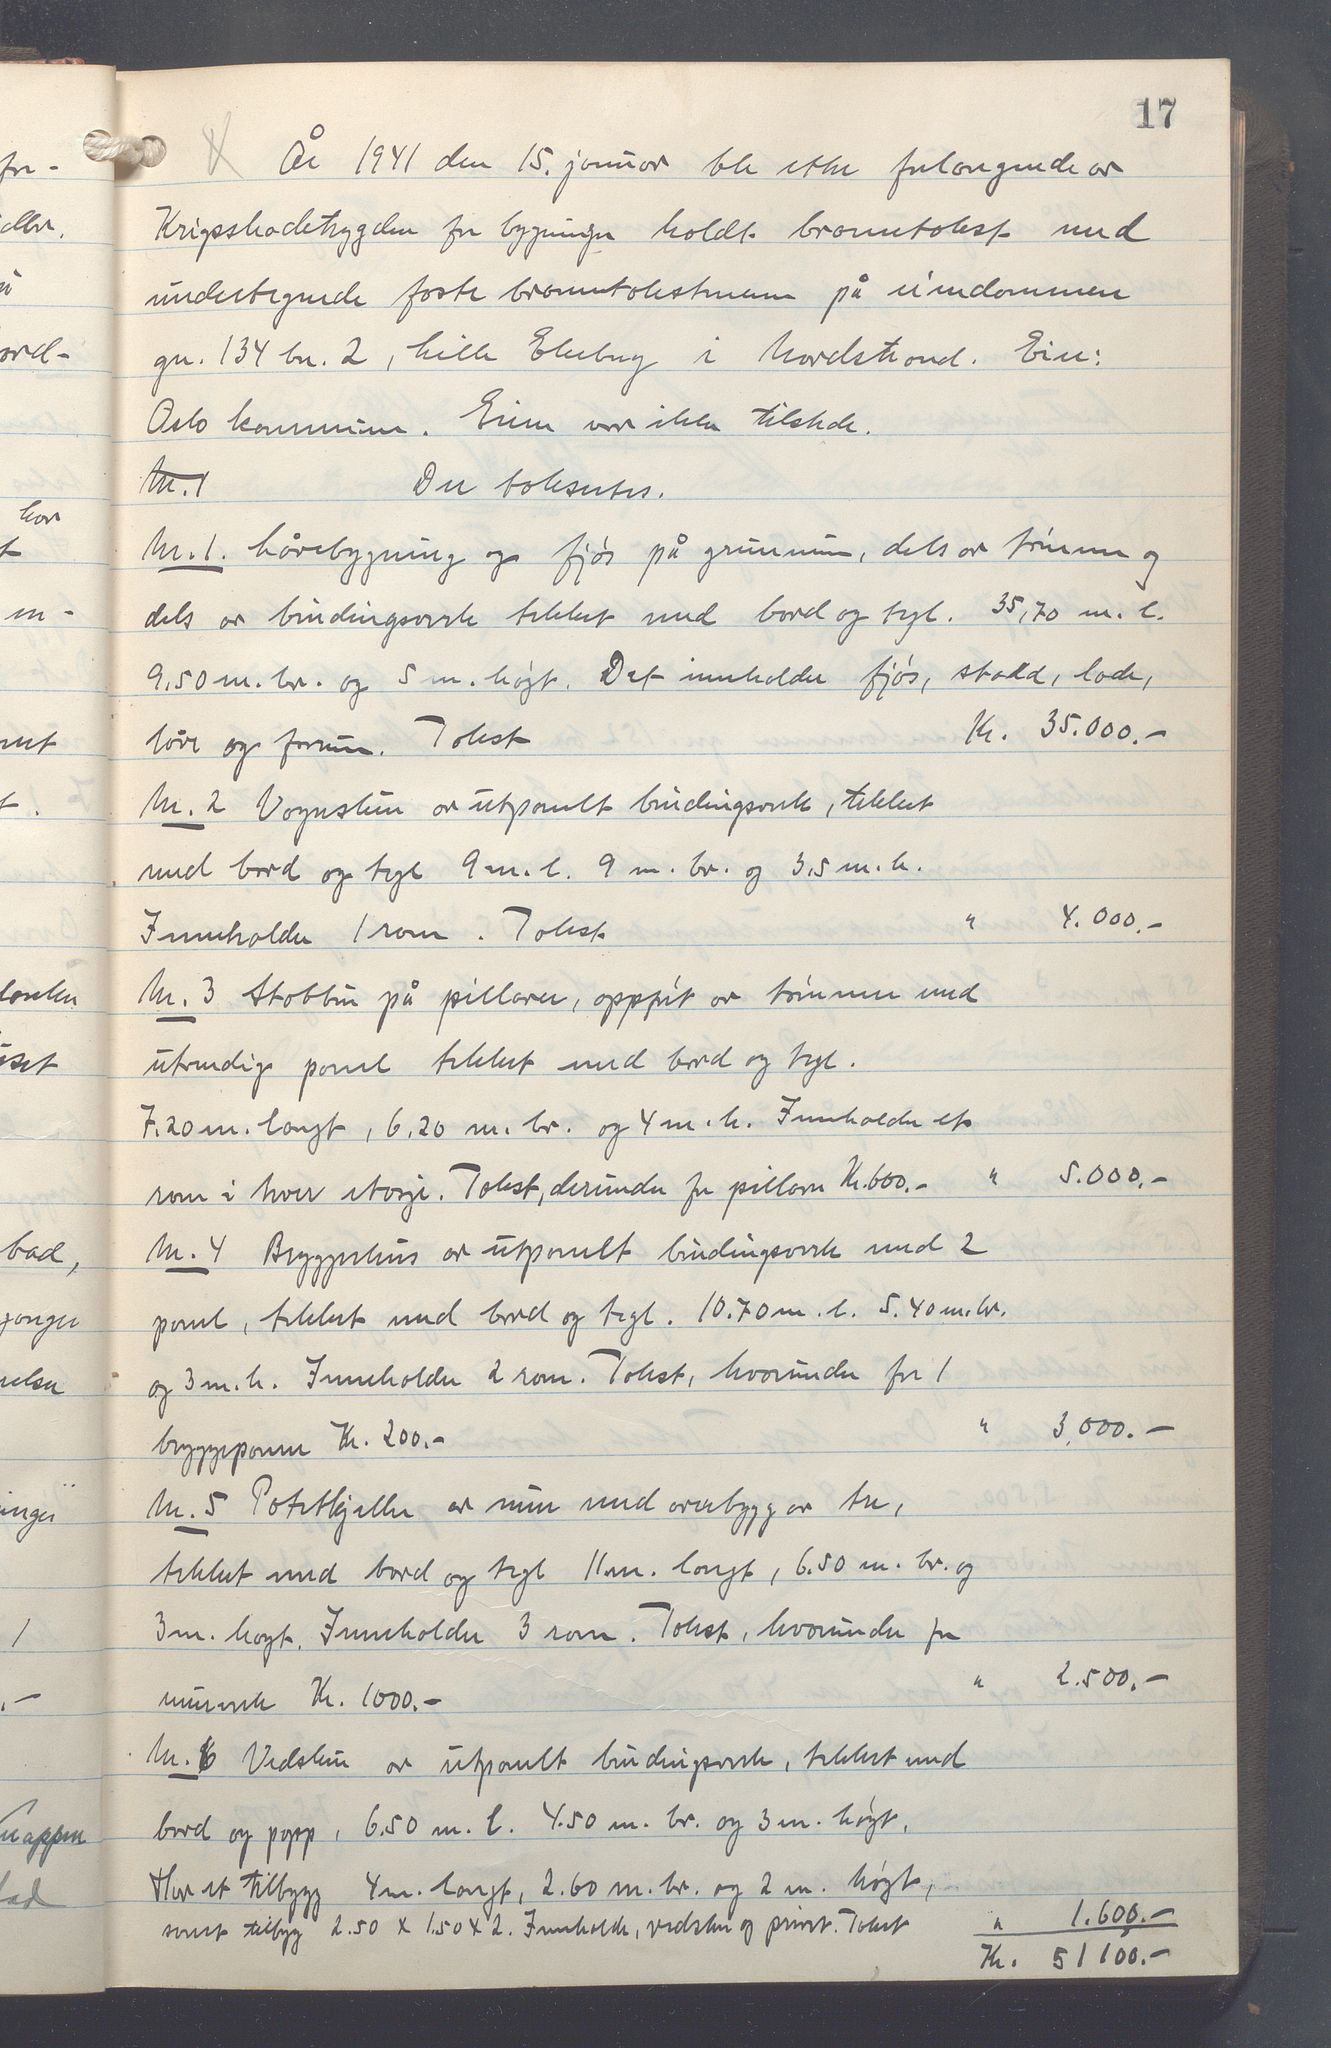 17
År 1941 den 15. januar ble etter forlangende av
Krigsskadetrygden for bygninger holdt branntakst med
undertegnede faste branntakstmenn på eiendommen
gnr. 134 bn. 2, lille Ekeberg i Nordstrand. Eier:
Oslo kommune. Eieren var ikke tilstede.
Nr. 1 Der taksertes.
Nr. 1. Låvebygning og fjøs på grunnmur, dels av tømmer og
dels av bindingsverk tekket med bord og tegl. 35,70 m. l.
9,50 m. br. og 5 m. høgt. Det inneholder fjøs, stall, lade,
låve og forrum. Takst Kr. 35.000.-
Nr. 2 Vognskur av utpanelt bindingsverk, tekket
med bord og tegl 9 m. l. 9 m. br. og 3,5 m. h.
Inneholder 1 rom. Takst " 4.000.-
Nr. 3 Stabbur på pillarer, oppført av tømmer med
utvendig panel tekket med bord og tegl.
7.20 m. langt, 6.20 m. br. og 4 m. h. Inneholder et
rom i hver etasje. Takst, derunder for pillarer Kr. 600.- " 5.000.-
Nr. 4 Bryggerhus av utpanelt bindingsverk med 2
panel, tekket med bord og tegl. 10.70 m. l. 5.40 m. br.
og 3 m. h. Inneholder 2 rom. Takst, hvorunder for 1
bryggepanne Kr. 200.- " 3.000.-
Nr. 5 Potetkjeller av mur med overbygg av tre,
tekket med bord og tegl 11 m. langt, 6.50 m. br. og
3 m. høgt. Inneholder 3 rom. Takst, hvorunder for
murverk Kr. 1000.- " 2.500.-
Nr. 6 Vedskur av utpanelt bindingsverk, tekket med
bord og papp, 6.50 m. l. 4.50 m. br. og 3 m. høgt.
Har et tilbygg 4 m. langt, 2.60 m. br. og 2 m. høgt,
samt tilbyg 2.50 x 1.50 x 2. Inneholder, vedskur og privet. Takst " 1.600.-
Kr. 51100.-